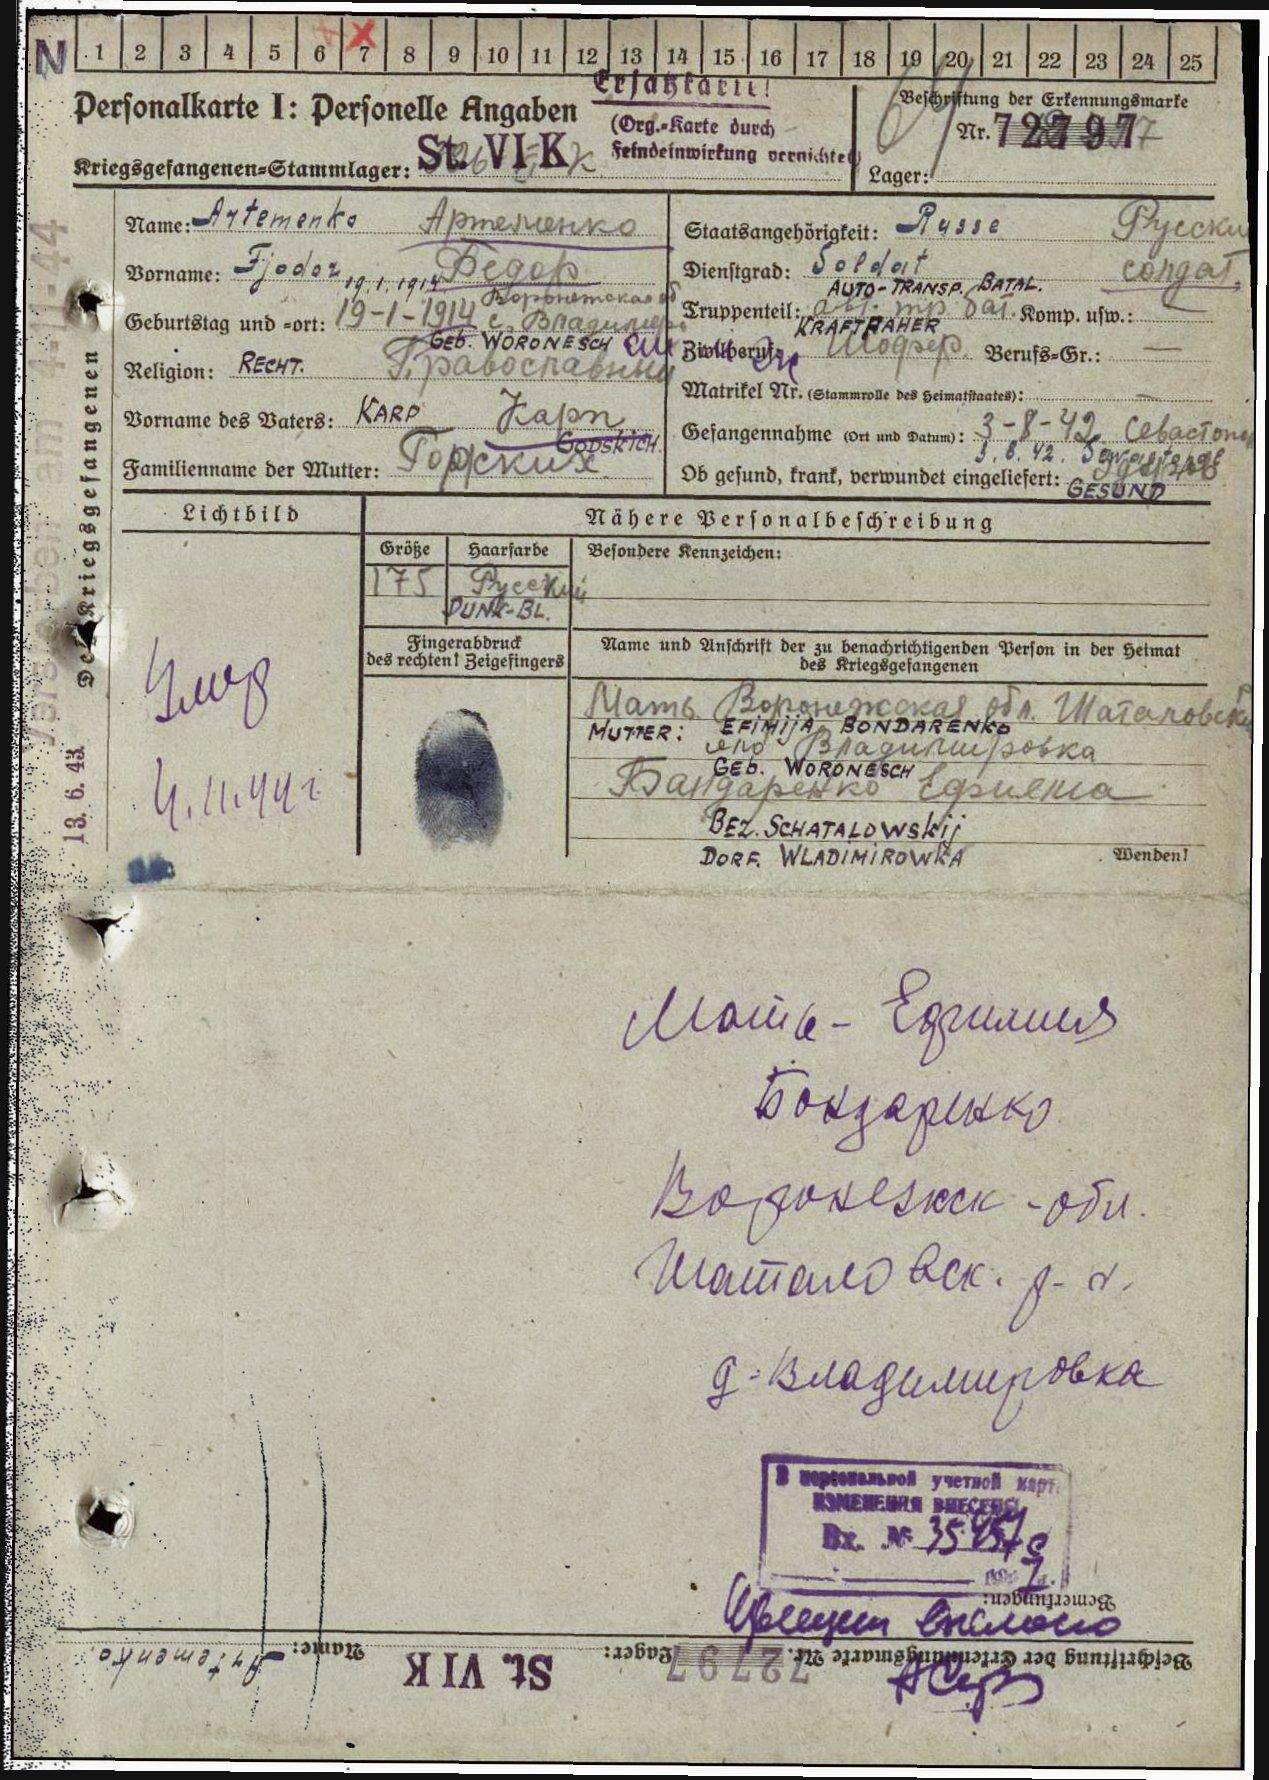 N 1 2 3 4 5 6 7 8 9 10 11 12 13 14 15 16 17 18 19 20 21 22 23 24 25
Ersatzkarte!
(Org.-Karte durch
Feindeinwirkung vernichtet)
Personalkarte I: Personelle Angaben
Kriegsgefangenen-Stammlager: St. VI K
Beschriftung der Erkennungsmarke
Nr. 72797
Lager:
Des Kriegsgefangenen
13. 6. 43
Name: Artemenko Артеменко
Vorname: Fjodor Федор
19.1.1914 Воронежская об
Geburtstag und -ort: 19-1-1914 с. Владимир
GEB. WORONESCH
Religion: RECHT. Православный
Vorname des Vaters: KARP Карп
GODSKICH.
Familienname der Mutter:
Staatsangehörigkeit: Russe Русский
Dienstgrad: Soldat солдат.
AUTO-TRANSP. BATAL.
Truppenteil: авт. тр. бат. Komp. usw.: —
KRAFTFAHER
Zivilberuf: Шофер Berufs-Gr.: —
Matrikel Nr. (Stammrolle des Heimatstaates): —
Gefangennahme (Ort und Datum): 3-8-42 Севастопо
3. 8. 42.
Ob gesund, krank, verwundet eingeliefert:
GESUND
Lichtbild
Nähere Personalbeschreibung
Größe Haarfarbe Besondere Kennzeichen:
175 Русский
DUNK-BL.
Fingerabdruck
des rechten! Zeigefingers
Name und Anschrift der zu benachrichtigenden Person in der Heimat
des Kriegsgefangenen
Умер
4.11.44 г
Мать Воронежская обл. Шаталовски
MUTTER: EFIMIJA BONDARENKO
Владимировка
GEB. WORONESCH
Бандаренко
BEZ. SCHATALOWSKIJ
DORF. WLADIMIROWKA
Wenden!
Мать - Ефимия
Бондаренко
Воронежск - обл.
Шаталовск. р-н.
д-Владимировка
В персональной учетной карт.
ИЗМЕНЕНИЯ ВНЕСЕНЫ
Вх. №
Bemerkungen:
Beschriftung der Erkennungsmarke Nr. 72797 Lager: St. VI K Name: Artemenko.